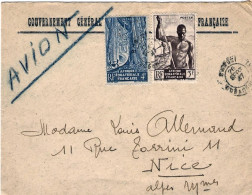 GOUVERNEMENT GÉNÉRAL FRANÇAISE
AVION
AFRIQUE ÉQUATORIALE FRANÇAISE
AFRIQUE ÉQUATORIALE FRANÇAISE
Madame Louis Allemand
11 Rue Torrini 11
Nice
Alpes Mmes